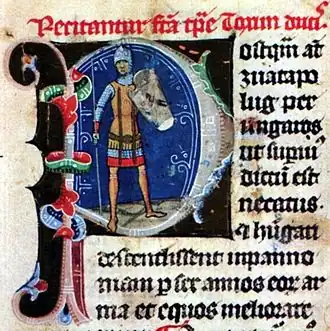 Recitantur fca tpe Toxun duc
Postqm at
zuatapo
lug per
hungaros
ut superi
dictum est
necatus.
hungari
descendissent in panno
niam p sex annos eor ar
ma et equos meliorare